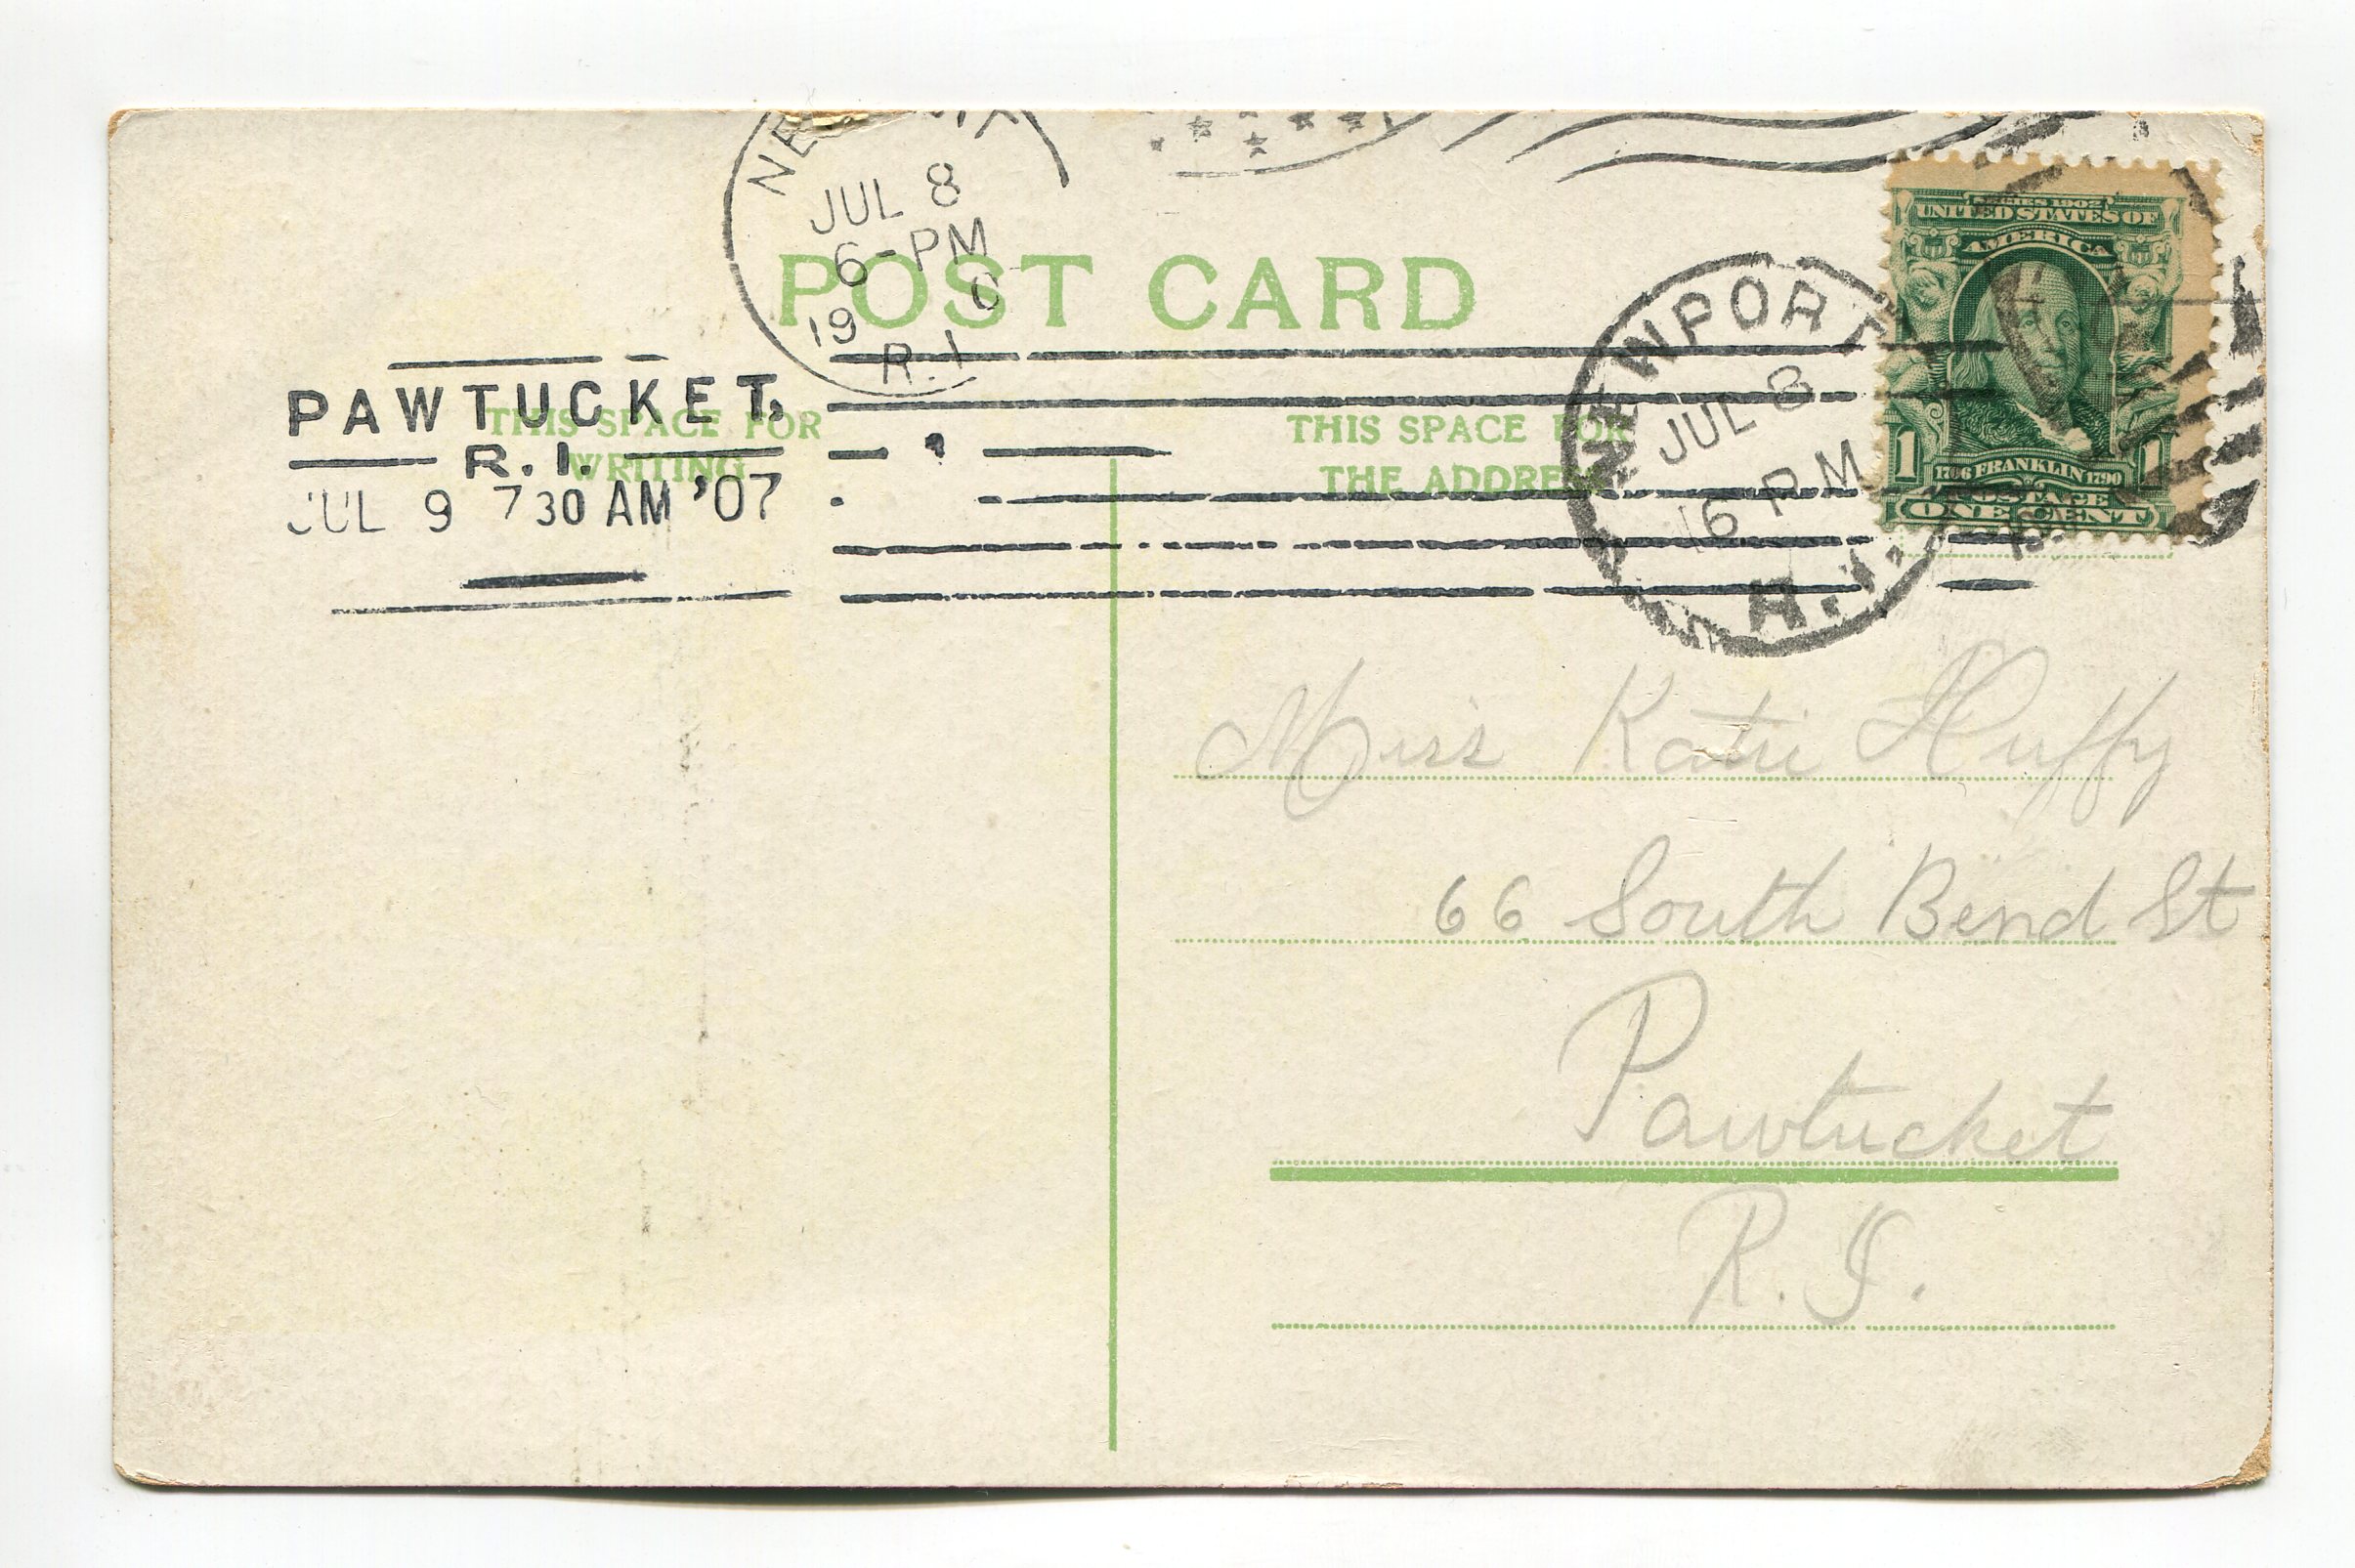 JUL 8
6-PM
19
R.I
POST CARD
NEWPORT
JUL 8
6 PM
R.I.
SERIES 1902
UNITED STATES OF
AMERICA
1 1
1706 FRANKLIN 1790
POSTAGE
ONE CENT
PAWTUCKET,
R.I.
JUL 9 7 30 AM '07
THIS SPACE FOR
WRITING
THIS SPACE FOR
THE ADDRESS
Miss Katie Huffy
66 South Bend St
Pawtucket
R.I.